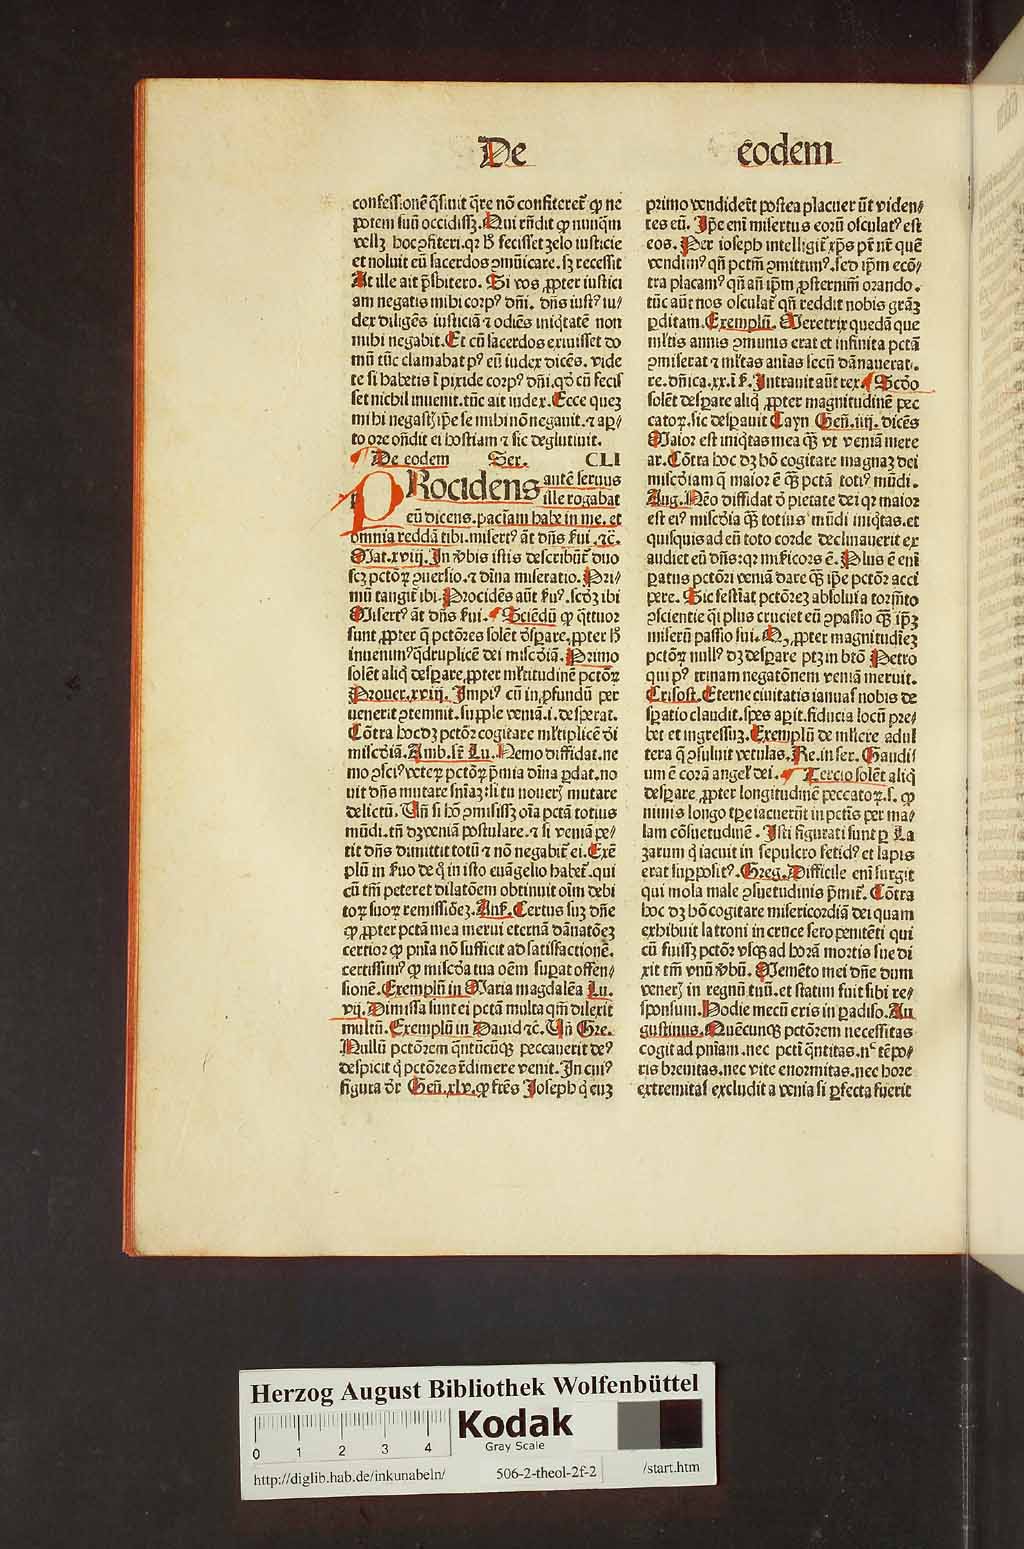 De eodem
confessionē q̄siuit q̄re nō confiteret̄ ꝙ ne
potem suū occidissꝫ. Qui rn̄dit ꝙ nunq̄m
vellꝫ hoc ꝯfiteri. qꝛ h̄ fecisset zelo iusticie
et noluit eū sacerdos ꝯmūicare. sꝫ recessit
At ille ait p̄sbitero. Si vos ꝓpter iustici
am negatis mihi corpꝰ dn̄i. dn̄s iustꝰ iu/
dex diligēs iusticiā ⁊ odiēs iniq̄tatē non
mihi negabit. Et cū sacerdos exiuisset do
mū tūc clamabat pꝰ eū iudex dicēs. vide
te si habetis ī pixide corpꝰ dn̄i. qd̓ cū fecis
set nichil inuenit. tūc ait iudex. Ecce queꝫ
mihi negast̉ ip̄e se mihi nō negauit. ⁊ aꝑ/
to ore on̄dit ei hostiam ⁊ sic deglutiuit.
De eodem Ser. CLI
PRocidens autē seruus
ille rogabat
eū dicens. paciam̄ habe in me. et
omnia reddā tibi. misertꝰ āt dn̄s ẜui. ⁊c̄.
Mat. xviij. In v̓bis istis describūt̄ duo
scꝫ pctōꝝ ꝯuersio. ⁊ diīna miseratio. Pri/
mū tangit̄ ibi. Procidēs aūt ẜuꝰ. scd̓ꝫ ibi
Misertꝰ āt dn̄s ẜui. Sciēdū ꝙ q̄ttuor
sunt ꝓpter q̄ pctōres solēt d̓sꝑare, ꝓpter h̄
inuenimꝰ q̄druplicē dei misc̓diā. Primo
solēt aliq̄ desꝑare ꝓpter ml̓titudinē pctōꝝ
Prouer. xviij. Impiꝰ cū in ꝓfundū per
uenerit ꝯtemnit. supple veniā. i. desperat.
Cōtra hoc dꝫ pctōr cogitare ml̓tiplicē d̓i
misc̓diā. Amb. sr̄ Lu. Nemo diffidat. ne
mo ꝯsciꝰ veteꝝ pctōꝝ p̄mia diīna ꝑdat. no
uit dn̄s mutare sniāꝫ: si tu noueꝝ mutare
delictū. Un̄ si hō ꝯmisissꝫ oīa pctā totius
mūdi. tn̄ dꝫ veniā postulare. ⁊ si veniā pe/
tit dn̄s dimittit totū ⁊ nō negabit̄ ei. Exē
plū in ẜuo de q̄ in isto euāgelio habet̄. qui
cū tm̄ peteret dilatōem obtinuit oīm debi
toꝝ suoꝝ remissiōeꝫ. Anẜ. Certus suꝫ dn̄e
ꝙ ꝓpter pctā mea merui eternā dānatōeꝫ
certior ꝙ pnīa nō sufficit ad satisfactionē.
certissimꝰ ꝙ misc̓dia tua oēm suꝑat offen/
sionē. Exemplū in Maria magdalēa Lu.
vij. Dimissa sunt ei pctā multa qm̄ dilexit
multū. Exemplū in Dauid ⁊c̄. Un̄ Gre.
Nullū pctōrem q̄ntūcūqꝫ peccauerit deꝰ
despicit q̄ pctōres r̄dimere venit. In cuiꝰ
figura d̓r Gen̄. xlv. ꝙ frēs Joseph q̄ euꝫ
primo vendider̄t postea placuer̄ūt viden/
tes eū. Ip̄e enī misertus eorū osculatꝰ est
eos. Per ioseph intelligit̄ xp̄s pr̄ nr̄ quē
vendimꝰ qn̄ pctm̄ ꝯmittimꝰ. sed ip̄m ecō/
tra placamꝰ qn̄ an̄ ip̄m ꝓsternim̄ orando.
tūc aūt nos osculat̄ qn̄ reddit nobis gr̄aꝫ
ꝑditam. Exemplū. Meretrix quedā que
ml̓tis annis ꝯmunis erat et infinita pctā
ꝯmiserat ⁊ ml̓tas aīas secū dānauerat.
re. dn̄ica. xx. ī ẜ. Intrauit aūt rex. Scd̓o
solēt desꝑare aliq̄ ꝓpter magnitudinē pec
catoꝝ. sic desꝑauit Cayn Gen̄. iiij. dicēs
Maior est iniq̄tas mea q̄ꝫ vt veniā mere
ar. Cōtra hoc dꝫ hō cogitare magnaꝫ dei
misc̓diam q̄ maior ē q̄ꝫ pctā totiꝰ mūdi.
Aug. Nēo diffidat d̓ pietate dei qꝛ maior
est eiꝰ misc̓dia q̄ꝫ totius mūdi iniq̄tas. et
quisquis ad eū toto corde declinauerit ex
audiet eū dn̄s: qꝛ mi̓sicors ē. Plus ē enī
ꝑatus pctōri veniā dare q̄ꝫ ip̄e pctōr acci
pere. Sic festīat pctōreꝫ absolui a torm̄to
ꝯscientie q̄i plus cruciet eū ꝯpassio q̄ꝫ ip̄ꝫ
miserū passio sui. N, ꝓpter magnitudīeꝫ
pctōꝝ nullꝰ dꝫ desꝑare ptꝫ in btō Petro
qui pꝰ trinam negatōnem veniā meruit.
Crisost. Eterne ciuitatis ianuas nobis de
sꝑatio claudit. spes aꝑit. fiducia locū pre/
bet et ingressuꝫ. Exemplū de ml̓iere adul
tera q̄ ꝯsuluit vetulas. Re. in ser. Gaudi
um ē corā angel̓ dei. Tercio solēt aliq̄
desꝑare ꝓpter longitudinē peccatoꝝ. s. ꝙ
nimis longo tꝑe iacuer̄ūt in pctīs per ma/
lam cōsuetudinē. Isti figurati sunt ꝑ La
zarum q̄ iacuit in sepulcro fetidꝰ et lapis
erat supꝑositꝰ. Greg. Difficile enī surgit
qui mola male ꝯsuetudinis p̄mit̄. Cōtra
hoc dꝫ hō cogitare misericordiā dei quam
exhibuit latroni in cruce sero penitēti qui
cū fuissꝫ pctōr vsqꝫ ad horā mortis sue di
xit tm̄ vnū v̓bū. Memēto mei dn̄e dum
veneꝝ in regnū tuū. et statim fuit sibi re/
sponsum. Hodie mecū eris in ꝑadiso. Au
gustinus. Quēcunqꝫ pctōrem necessitas
cogit ad pniam. nec pcti q̄ntitas. nᶜ tēpo/
ris breuitas. nec vite enormitas. nec hore
extremitas excludit a venia si ꝑfecta fuerit
Herzog August Bibliothek Wolfenbüttel
0 1 2 3 4
Kodak
Gray Scale
http://diglib.hab.de/inkunabeln/ 506-2-theol-2f-2 /start.htm